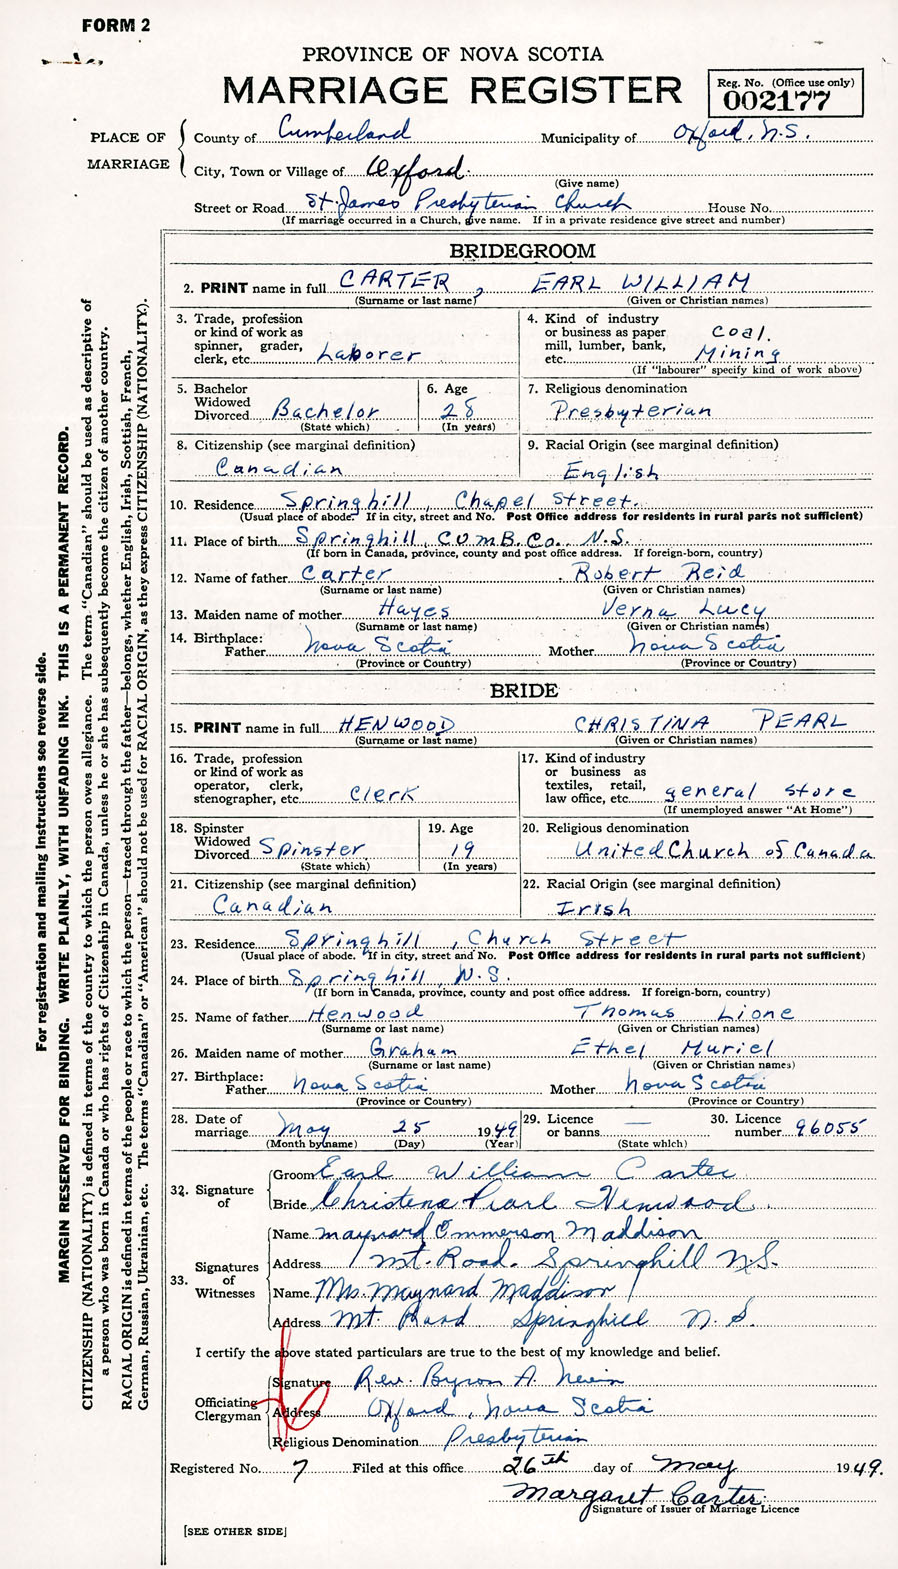 FORM 2
PROVINCE OF NOVA SCOTIA
MARRIAGE REGISTER
Reg. No. (Office use only)
002177
PLACE OF MARRIAGE
County of Cumberland Municipality of Oxford, N.S.
City, Town or Village of Oxford.
(Give name)
Street or Road St. James Presbyterian Church House No.
(If marriage occurred in a Church, give name. If in a private residence give street and number)
BRIDEGROOM
2. PRINT name in full CARTER, EARL WILLIAM
(Surname or last name) (Given or Christian names)
3. Trade, profession or kind of work as spinner, grader, clerk, etc. Laborer
4. Kind of industry or business as paper mill, lumber, bank, etc. Coal. Mining
(If "labourer" specify kind of work above)
5. Bachelor Widowed Divorced Bachelor
(State which)
6. Age 28
(In years)
7. Religious denomination
Presbyterian
8. Citizenship (see marginal definition)
Canadian
9. Racial Origin (see marginal definition)
English
10. Residence Springhill, Chapel Street.
(Usual place of abode. If in city, street and No. Post Office address for residents in rural parts not sufficient)
11. Place of birth Springhill, CUMB. Co. N.S.
(If born in Canada, province, county and post office address. If foreign-born, country)
12. Name of father Carter Robert Reid
(Surname or last name) (Given or Christian names)
13. Maiden name of mother Hayes Verna Lucy
(Surname or last name) (Given or Christian names)
14. Birthplace: Father Nova Scotia Mother Nova Scotia
(Province or Country) (Province or Country)
BRIDE
15. PRINT name in full HENWOOD CHRISTINA PEARL
(Surname or last name) (Given or Christian names)
16. Trade, profession or kind of work as operator, clerk, stenographer, etc. Clerk
17. Kind of industry or business as textiles, retail, law office, etc. general store
(If unemployed answer "At Home")
18. Spinster Widowed Divorced Spinster
(State which)
19. Age 19
(In years)
20. Religious denomination
United Church of Canada
21. Citizenship (see marginal definition)
Canadian
22. Racial Origin (see marginal definition)
Irish
23. Residence Springhill, Church Street
(Usual place of abode. If in city, street and No. Post Office address for residents in rural parts not sufficient)
24. Place of birth Springhill, N.S.
(If born in Canada, province, county and post office address. If foreign-born, country)
25. Name of father Henwood Thomas Lione
(Surname or last name) (Given or Christian names)
26. Maiden name of mother Graham Ethel Muriel
(Surname or last name) (Given or Christian names)
27. Birthplace: Father Nova Scotia Mother Nova Scotia
(Province or Country) (Province or Country)
28. Date of marriage May 25 1949
(Month by name) (Day) (Year)
29. Licence or banns —
(State which)
30. Licence number 96055
32. Signature of
Groom Earl William Carter
Bride Christena Pearl Henwood.
33. Signatures of Witnesses
Name Maynard Emmerson Maddison
Address Mt. Road. Springhill N.S.
Name Mrs. Maynard Maddison
Address Mt. Road Springhill N.S.
I certify the above stated particulars are true to the best of my knowledge and belief.
Officiating Clergyman
Signature Rev. Byron A. Nevin
Address Oxford, Nova Scotia
Religious Denomination Presbyterian
Registered No. 7 Filed at this office 26th day of May 1949.
Margaret Carter
Signature of Issuer of Marriage Licence
[SEE OTHER SIDE]
For registration and mailing instructions see reverse side.
MARGIN RESERVED FOR BINDING. WRITE PLAINLY, WITH UNFADING INK. THIS IS A PERMANENT RECORD.
CITIZENSHIP (NATIONALITY) is defined in terms of the country to which the person owes allegiance. The term "Canadian" should be used as descriptive of
a person who was born in Canada or who has rights of Citizenship in Canada, unless he or she has subsequently become the citizen of another country.
RACIAL ORIGIN is defined in terms of the people or race to which the person—traced through the father—belongs, whether English, Irish, Scottish, French,
German, Russian, Ukrainian, etc. The terms "Canadian" or "American" should not be used for RACIAL ORIGIN, as they express CITIZENSHIP (NATIONALITY).